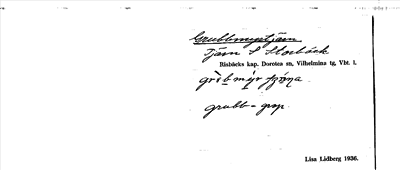 Grubbmyrtjärn
Tjärn S Storbäck
Risbäcks kap. Dorotea sn, Vilhelmina tg. Vbt. l.
grubb = grop
Lisa Lidberg 1936.